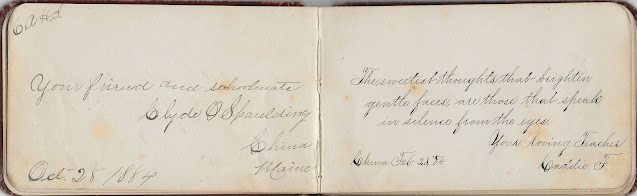 C A H S
Your friend and schoolmate
Clyde O Spaulding
China
Maine
Oct. 28 1884
The sweetest thoughts that brighten
gentle faces, are those that speak
in silence from the eyes.
Your loving Teacher
China Feb 28 '84
Caddie F